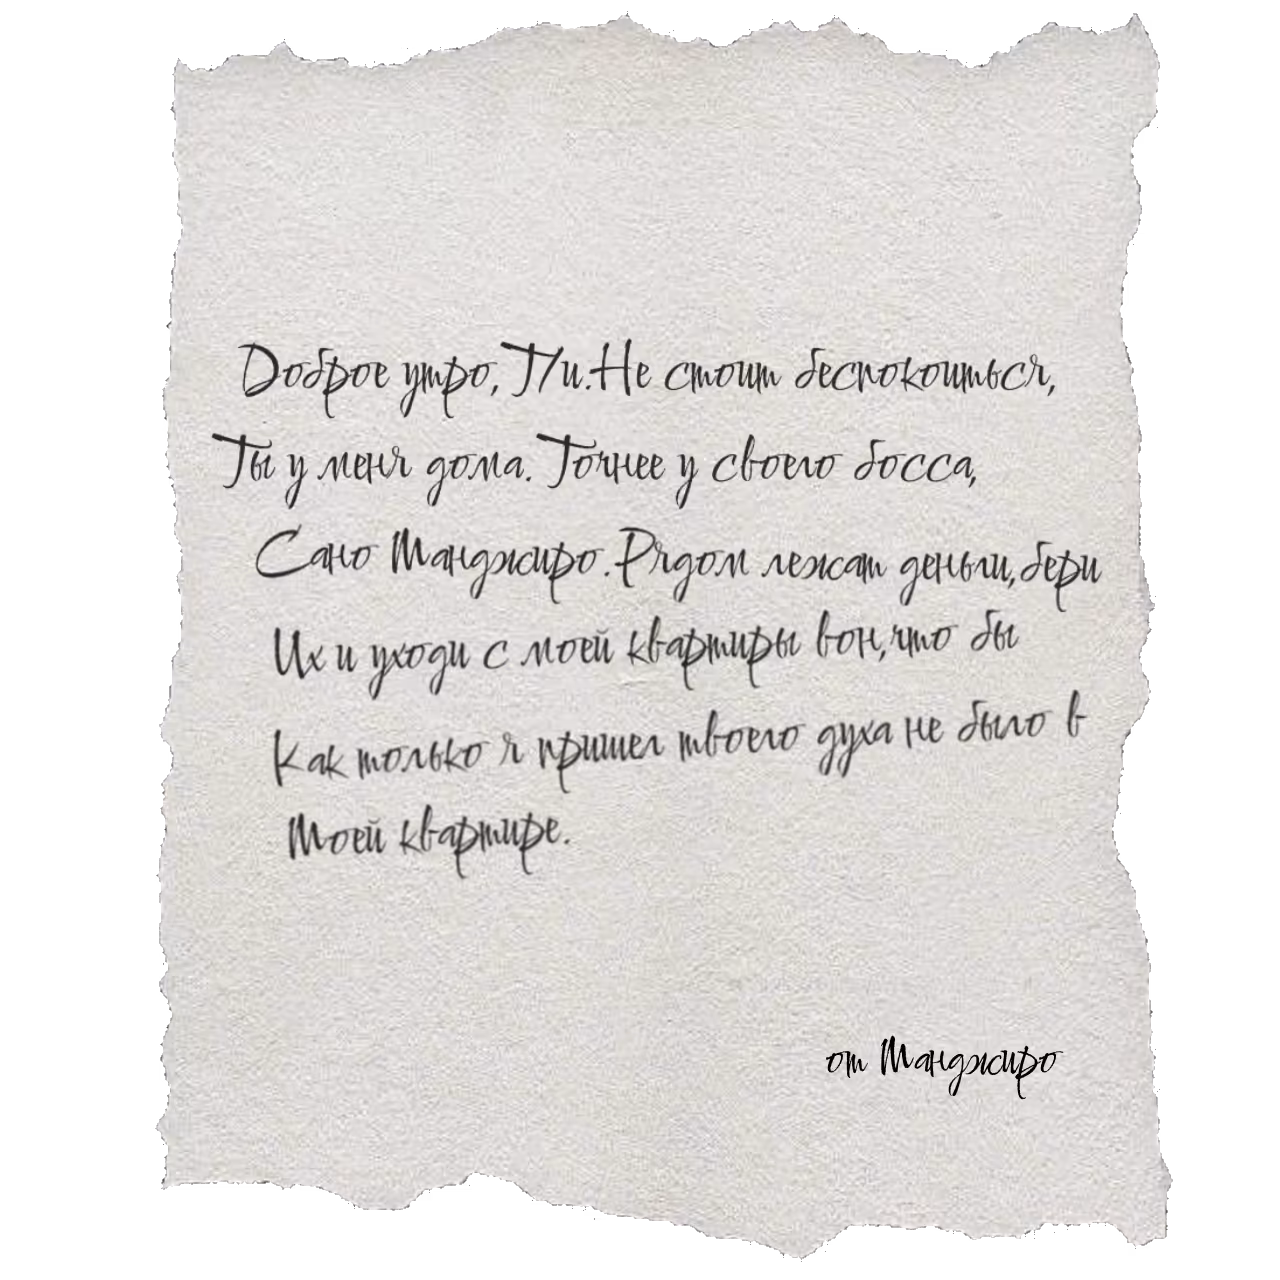 Доброе утро,Т/и.Не стоит беспокоиться,
Ты у меня дома. Точнее у своего босса,
Сано Манджиро.Рядом лежат деньги,бери
Их и уходи с моей квартиры вон,что бы
Как только я пришел твоего духа не было в
Моей квартире.
от Манджиро